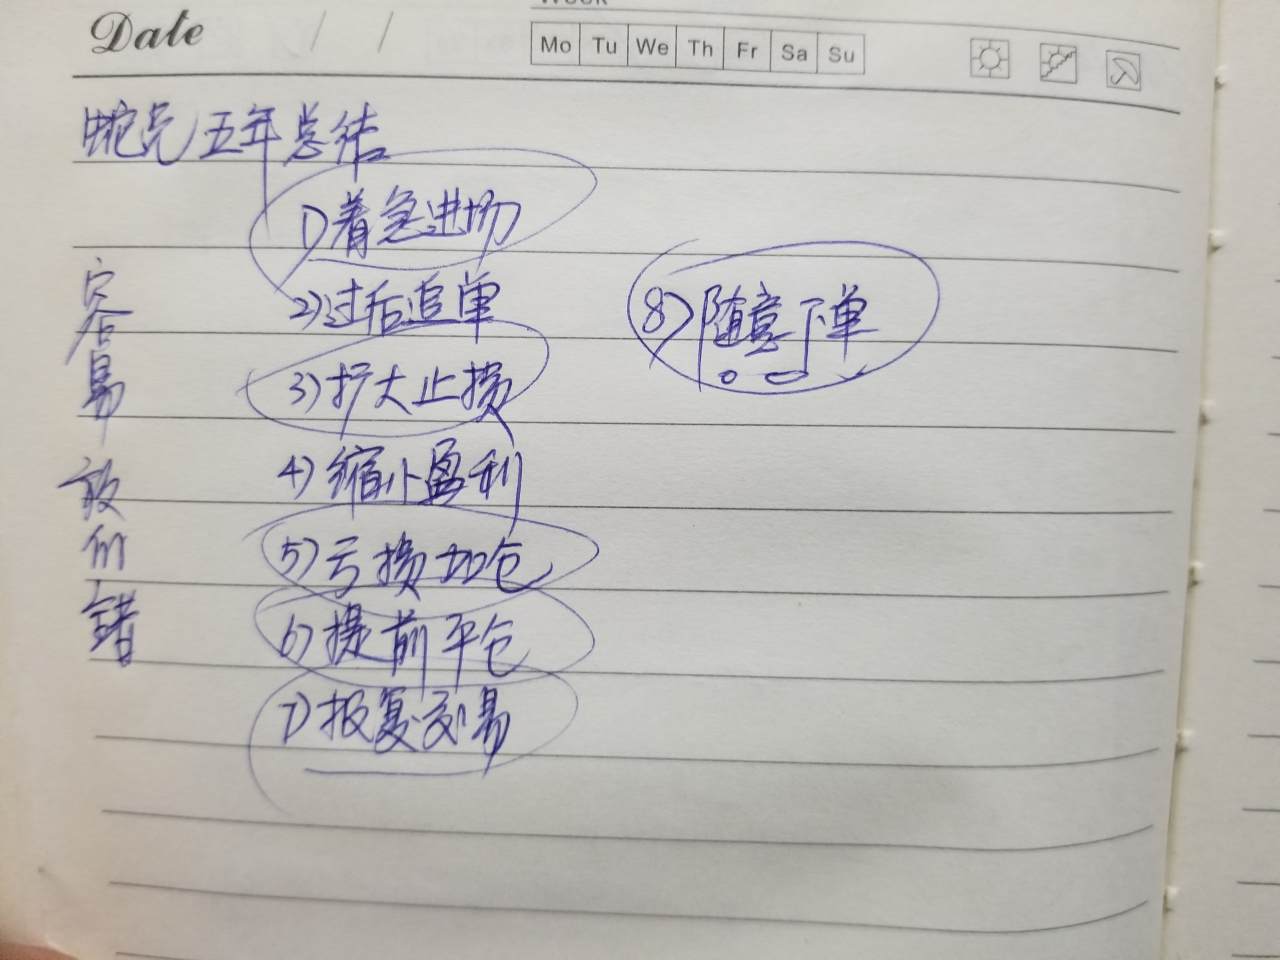 Week
Date / /
Mo Tu We Th Fr Sa Su
蛇兄五年总结
容易放的错
1)着急进场
2)过后追单
3)扩大止损
4)缩小盈利
5)亏损加仓
6)提前平仓
7)报复交易
8)随意下单